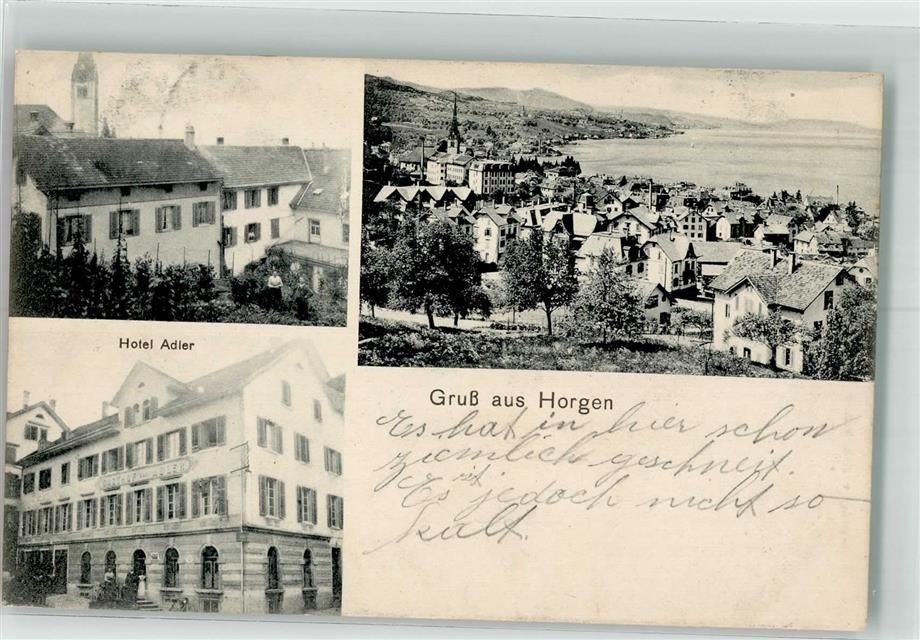 Hotel Adler
Gruß aus Horgen
Es hat in hier schon
ziemlich geschneit.
Es ist jedoch nicht so
kalt.